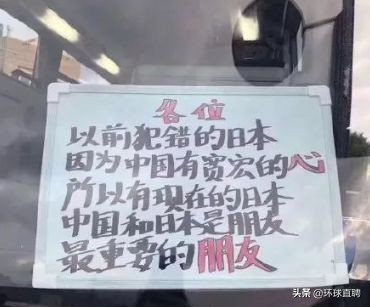 各位
以前犯错的日本
因为中国有宽宏的心
所以有现在的日本
中国和日本是朋友
最重要的朋友
头条@环球直聘